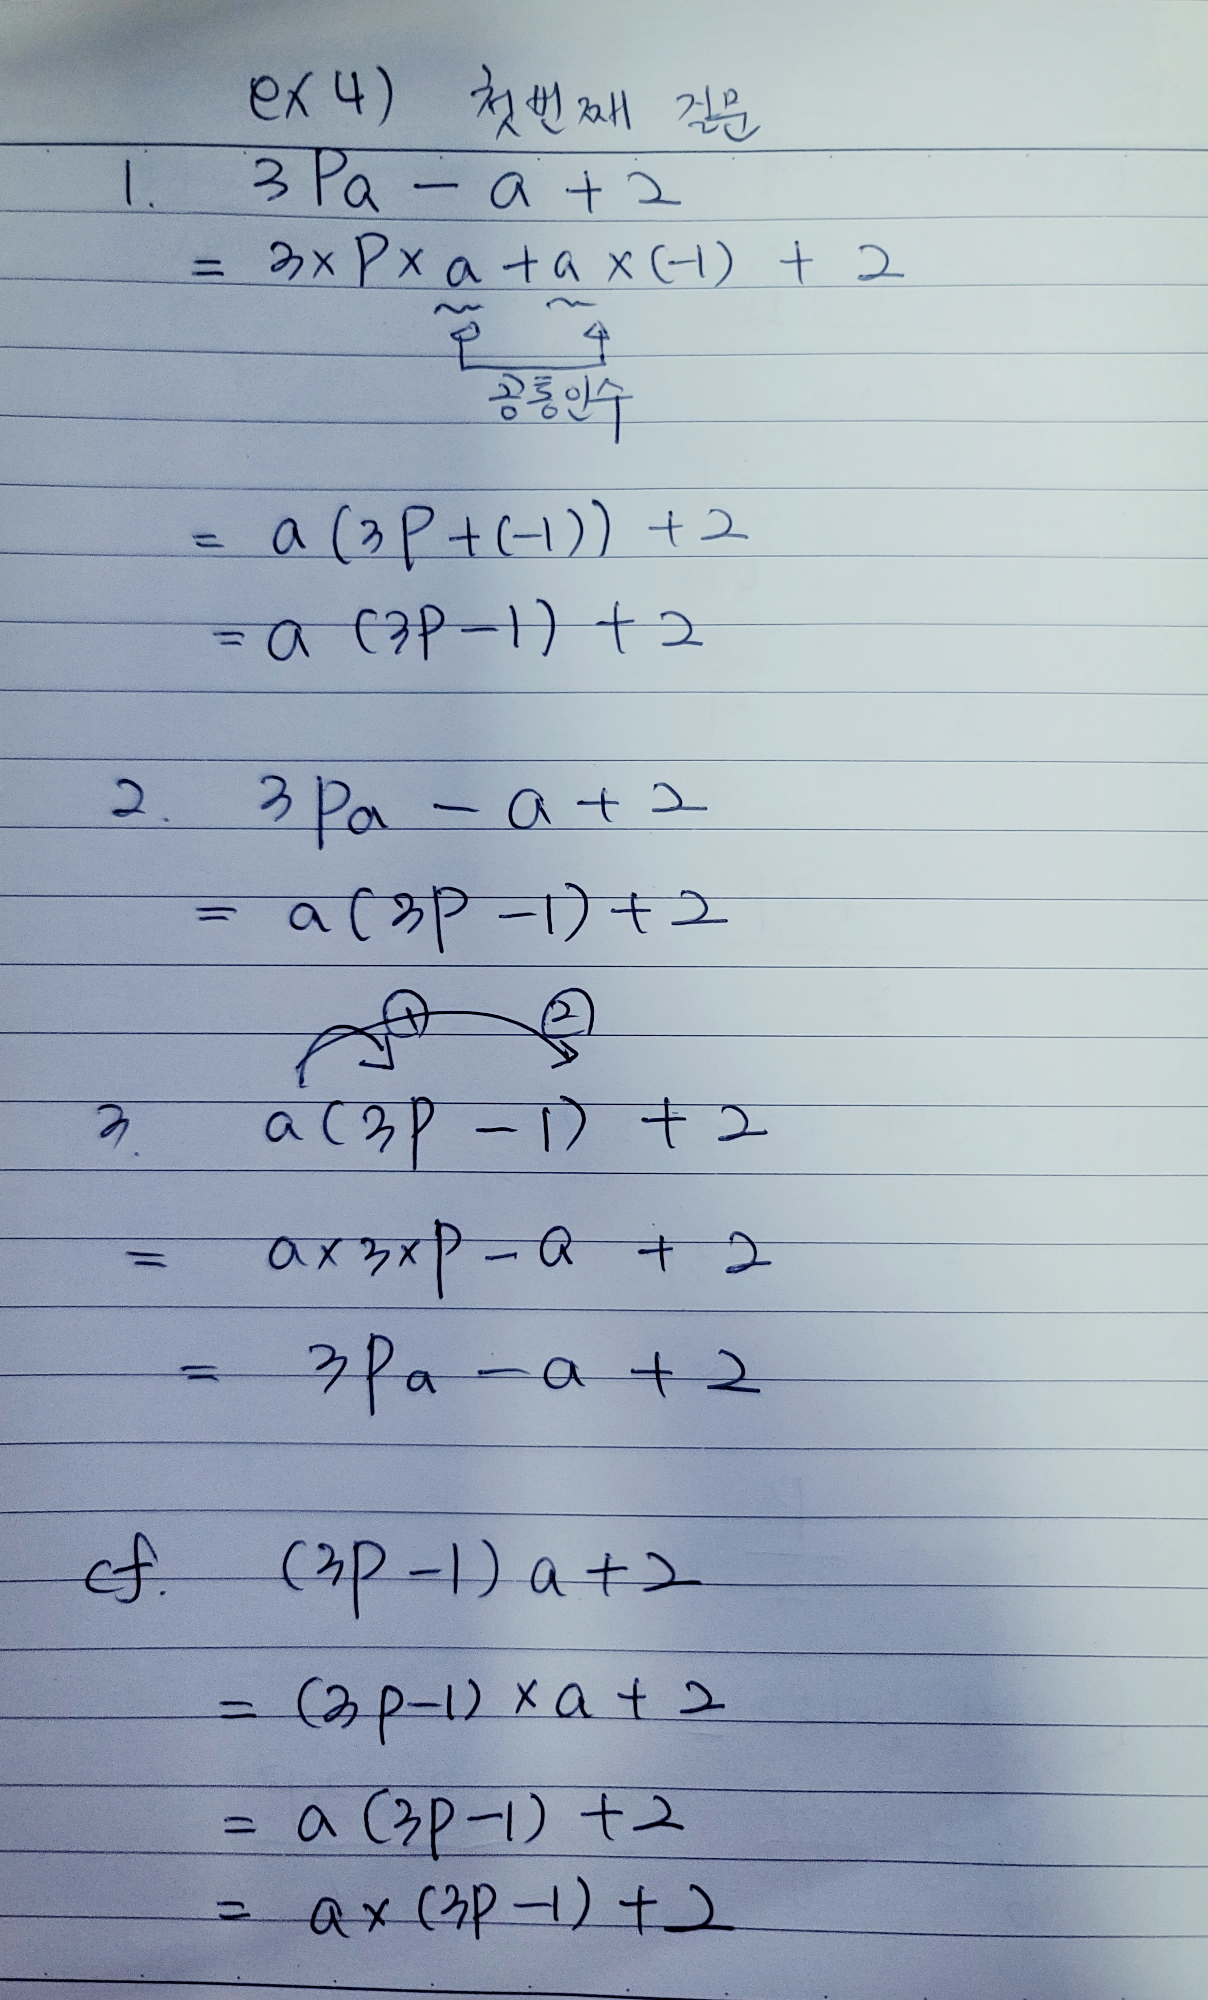 ex 4) 첫번째 질문
1. 3Pa - a + 2
= 3×P×a + a×(-1) + 2
공통인수
= a(3P+(-1)) + 2
= a (3P-1) + 2
2. 3Pa - a + 2
= a(3P-1) + 2
① ②
3. a(3P-1) + 2
= a×3×P - a + 2
= 3Pa - a + 2
cf. (3P-1)a + 2
= (3P-1)×a + 2
= a(3P-1) + 2
= a×(3P-1) + 2